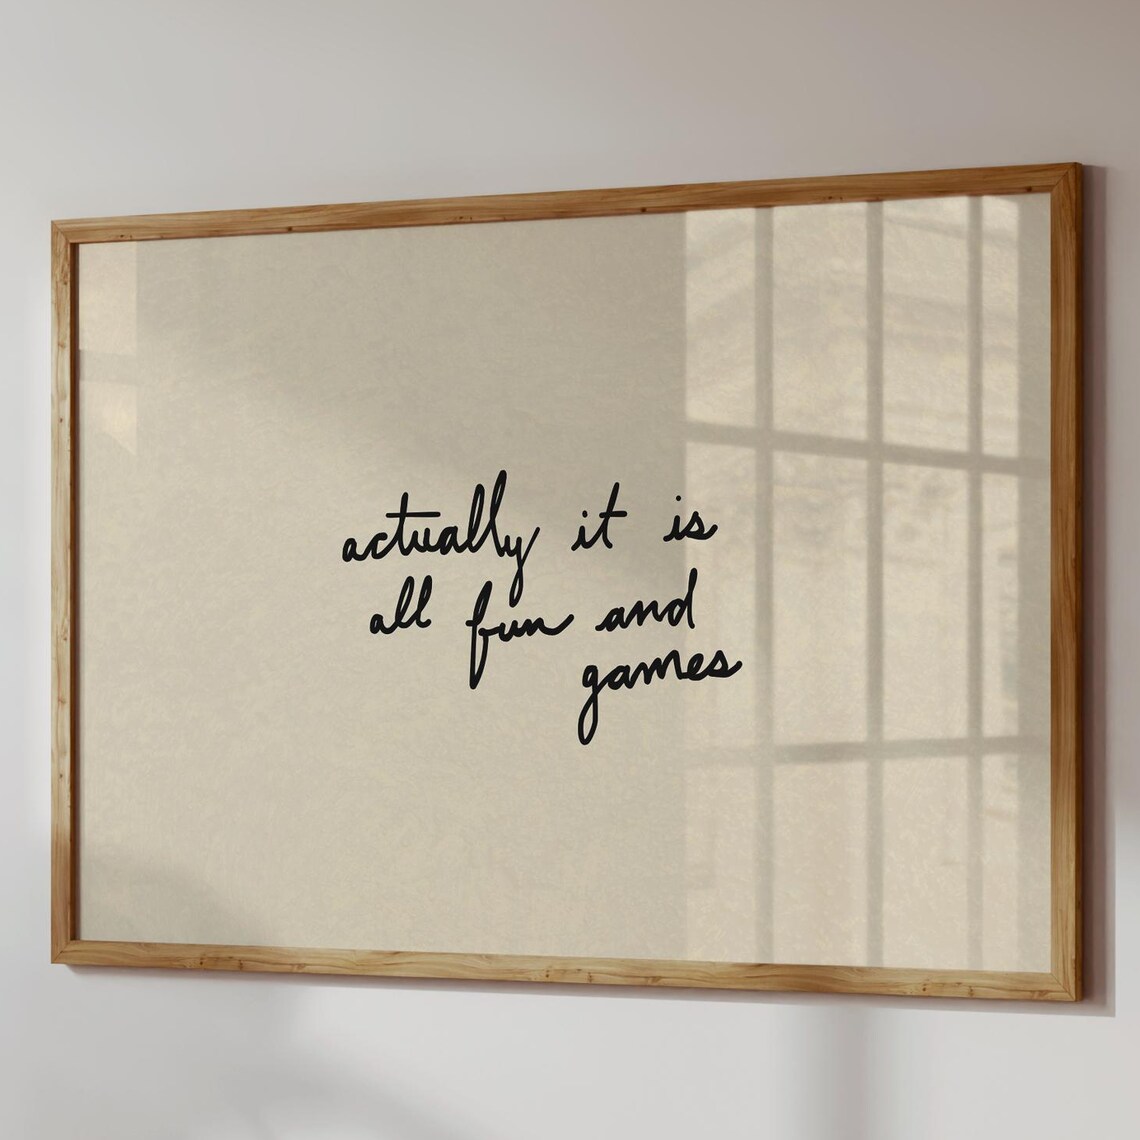 actually it is
all fun and
games